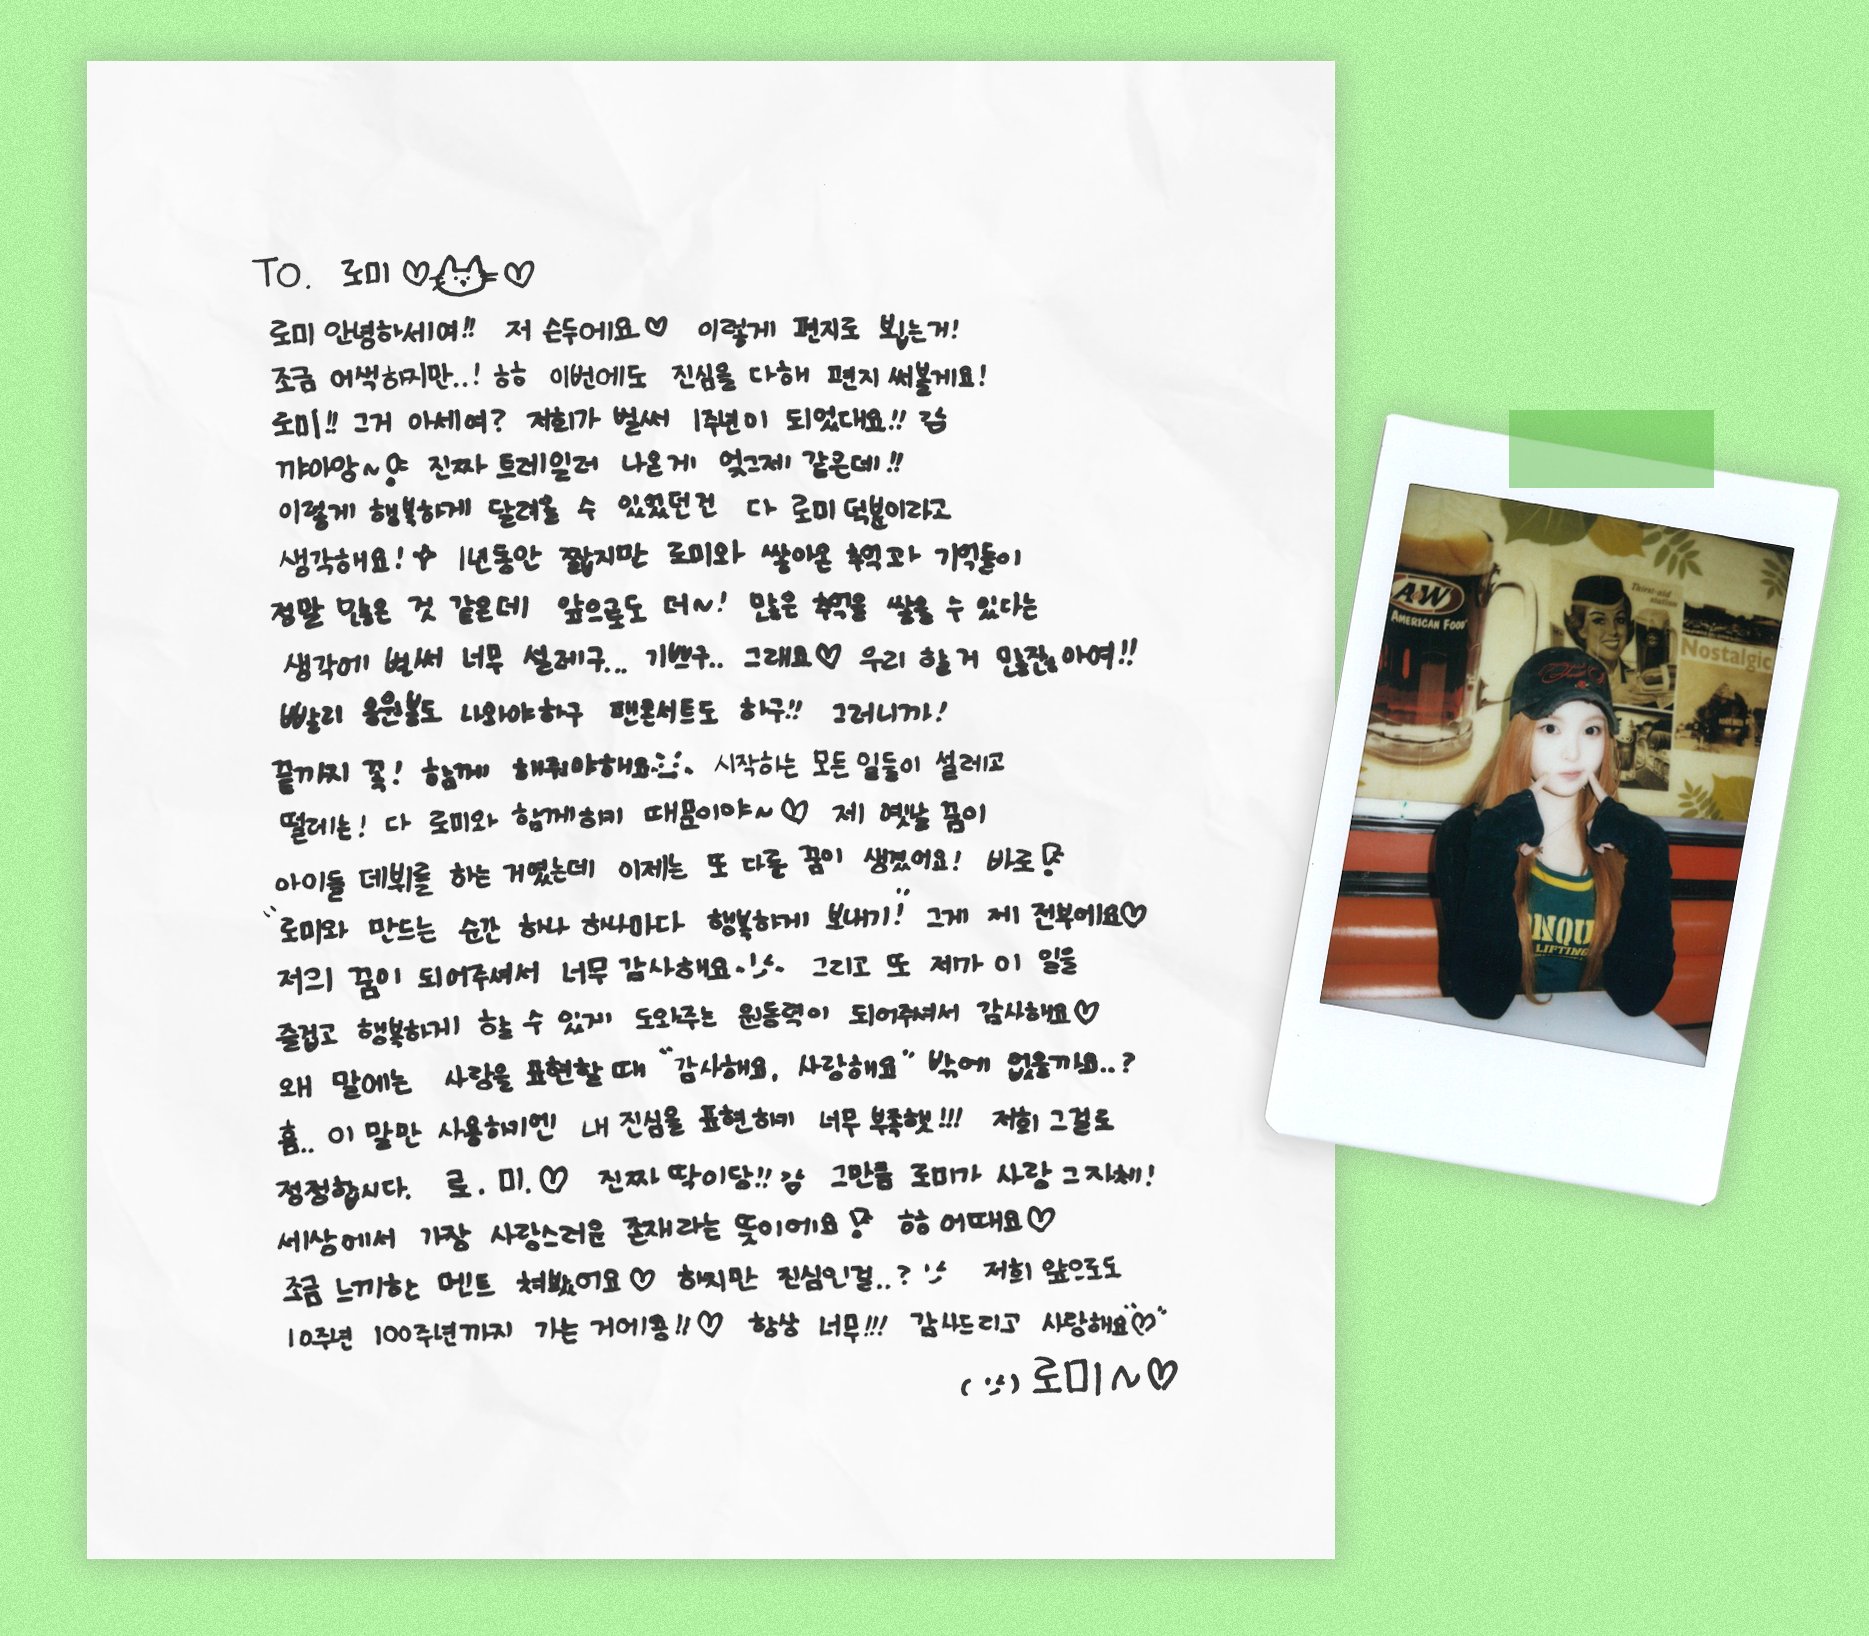 TO. 로미♡♡
로미 안녕하세여!! 저 슨두에요♡ 이렇게 편지로 뵙는거!
조금 어색하지만..! ㅎㅎ 이번에도 진심을 다해 편지 써볼게요!
로미!! 그거 아세여? 저희가 벌써 1주년이 되었대요!!
꺄아앙~ 진짜 트레일러 나온게 엊그제 같은데!!
이렇게 행복하게 달려올 수 있었던건 다 로미 덕분이라고
생각해요! 1년동안 짧지만 로미와 쌓아온 추억과 기억들이
정말 많은 것 같은데 앞으로도 더~! 많은 추억을 쌓을 수 있다는
생각에 벌써 너무 설레구... 기쁘구.. 그래요♡ 우리 할거 많잖아여!!
빨리 응원봉도 나와야하구 팬콘서트도 하구!! 그러니까!
끝까지 꼭! 함께 해줘야해요 시작하는 모든 일들이 설레고
떨레는! 다 로미와 함께하기 때문이야~♡ 제 옛날 꿈이
아이돌 데뷔를 하는 거였는데 이제는 또 다른 꿈이 생겼어요! 바로
"로미와 만드는 순간 하나 하나마다 행복하게 보내기!" 그게 제 전부에요♡
저의 꿈이 되어주셔서 너무 감사해요 그리고 또 제가 이 일을
즐겁고 행복하게 할 수 있게 도와주는 원동력이 되어주셔서 감사해요♡
왜 말에는 사랑을 표현할 때 "감사해요, 사랑해요" 밖에 없을까요..?
흠.. 이 말만 사용하기엔 내 진심을 표현하기 너무 부족햇!!! 저희 그걸로
정정합시다. 로. 미.♡ 진짜 딱이당!! 그만큼 로미가 사랑 그 자체!
세상에서 가장 사랑스러운 존재라는 뜻이에요 ㅎㅎ 어때요♡
조금 느끼한 멘트 쳐봤어요♡ 하지만 진심인걸..? 저희 앞으로도
10주년 100주년까지 가는 거에용!!♡ 항상 너무!!! 감사드리고 사랑해요♡
로미~♡
A&W
AMERICAN FOOD
Thirst-aid
station
Nostalgic
LIFTING